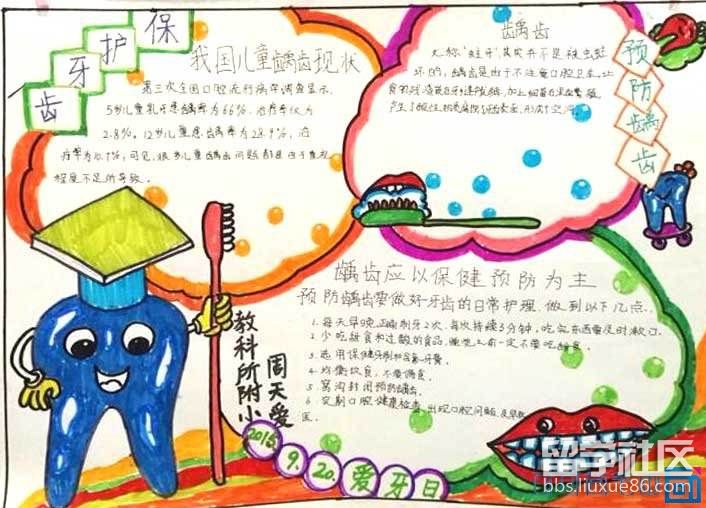 保
护
牙
齿
我国儿童龋齿现状
第三次全国口腔流行病学调查显示，
5岁儿童乳牙患龋率为66%，治疗率仅为
2.8%。12岁儿童患龋率为28.9%，治
疗率为10.7%，可见，很多儿童龋齿问题都是由于重视
程度不足所导致。
龋齿
又称"蛀牙"，其实并不是被虫蛀
坏的，龋齿是由于不注重口腔卫生，让
产生了酸性
预
防
龋
齿
龋齿应以保健预防为主
预防龋齿要做好牙齿的日常护理，做到以下几点.
1. 每天早晚正确刷牙2次，每次持续3分钟，吃完东西要及时漱口.
2. 少吃甜食和过酸的食品，睡觉之前一定不要吃甜食.
3. 选用保健牙刷和含氟牙膏.
4. 均衡饮食，不要偏食.
5. 窝沟封闭预防龋齿.
6. 定期口腔健康检查，出现口腔问题及早就
医.
教科所附小
周天爱
2015.
9.
20.
爱
牙
日
留学社区
bbs.liuxue86.com